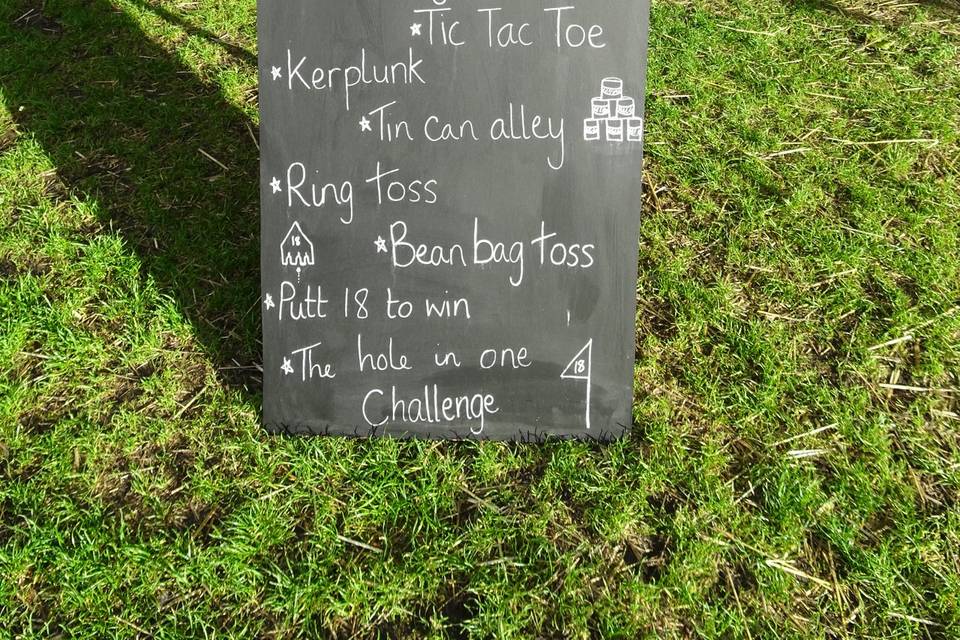 Tic Tac Toe
Kerplunk
Tin can alley
Ring toss
18
Bean bag toss
Putt 18 to win
The hole in one
18
Challenge